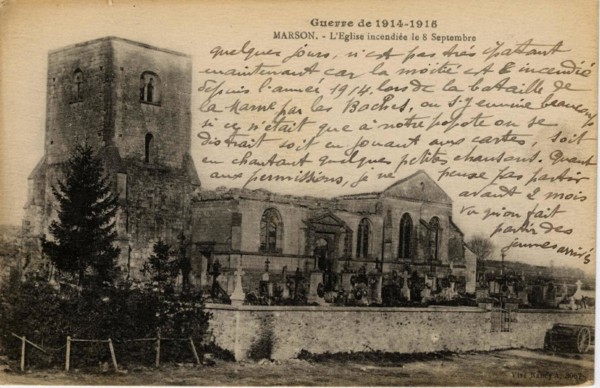 Guerre de 1914-1915
MARSON. - L'Eglise incendiée le 8 Septembre
quelques jours, n'est pas très épattant
maintenant car la moitié a été incendié
depuis l'année 1914 lors de la bataille de
la Marne par les Boches, on s'y ennuie beaucoup
si ce n'était que à notre popote on se
distrait soit en jouant aux cartes, soit
en chantant quelques petites chansons. Quant
aux permissions, je ne pense pas partir
avant 2 mois
vu qu'on fait
partir des
jeunes arrivés